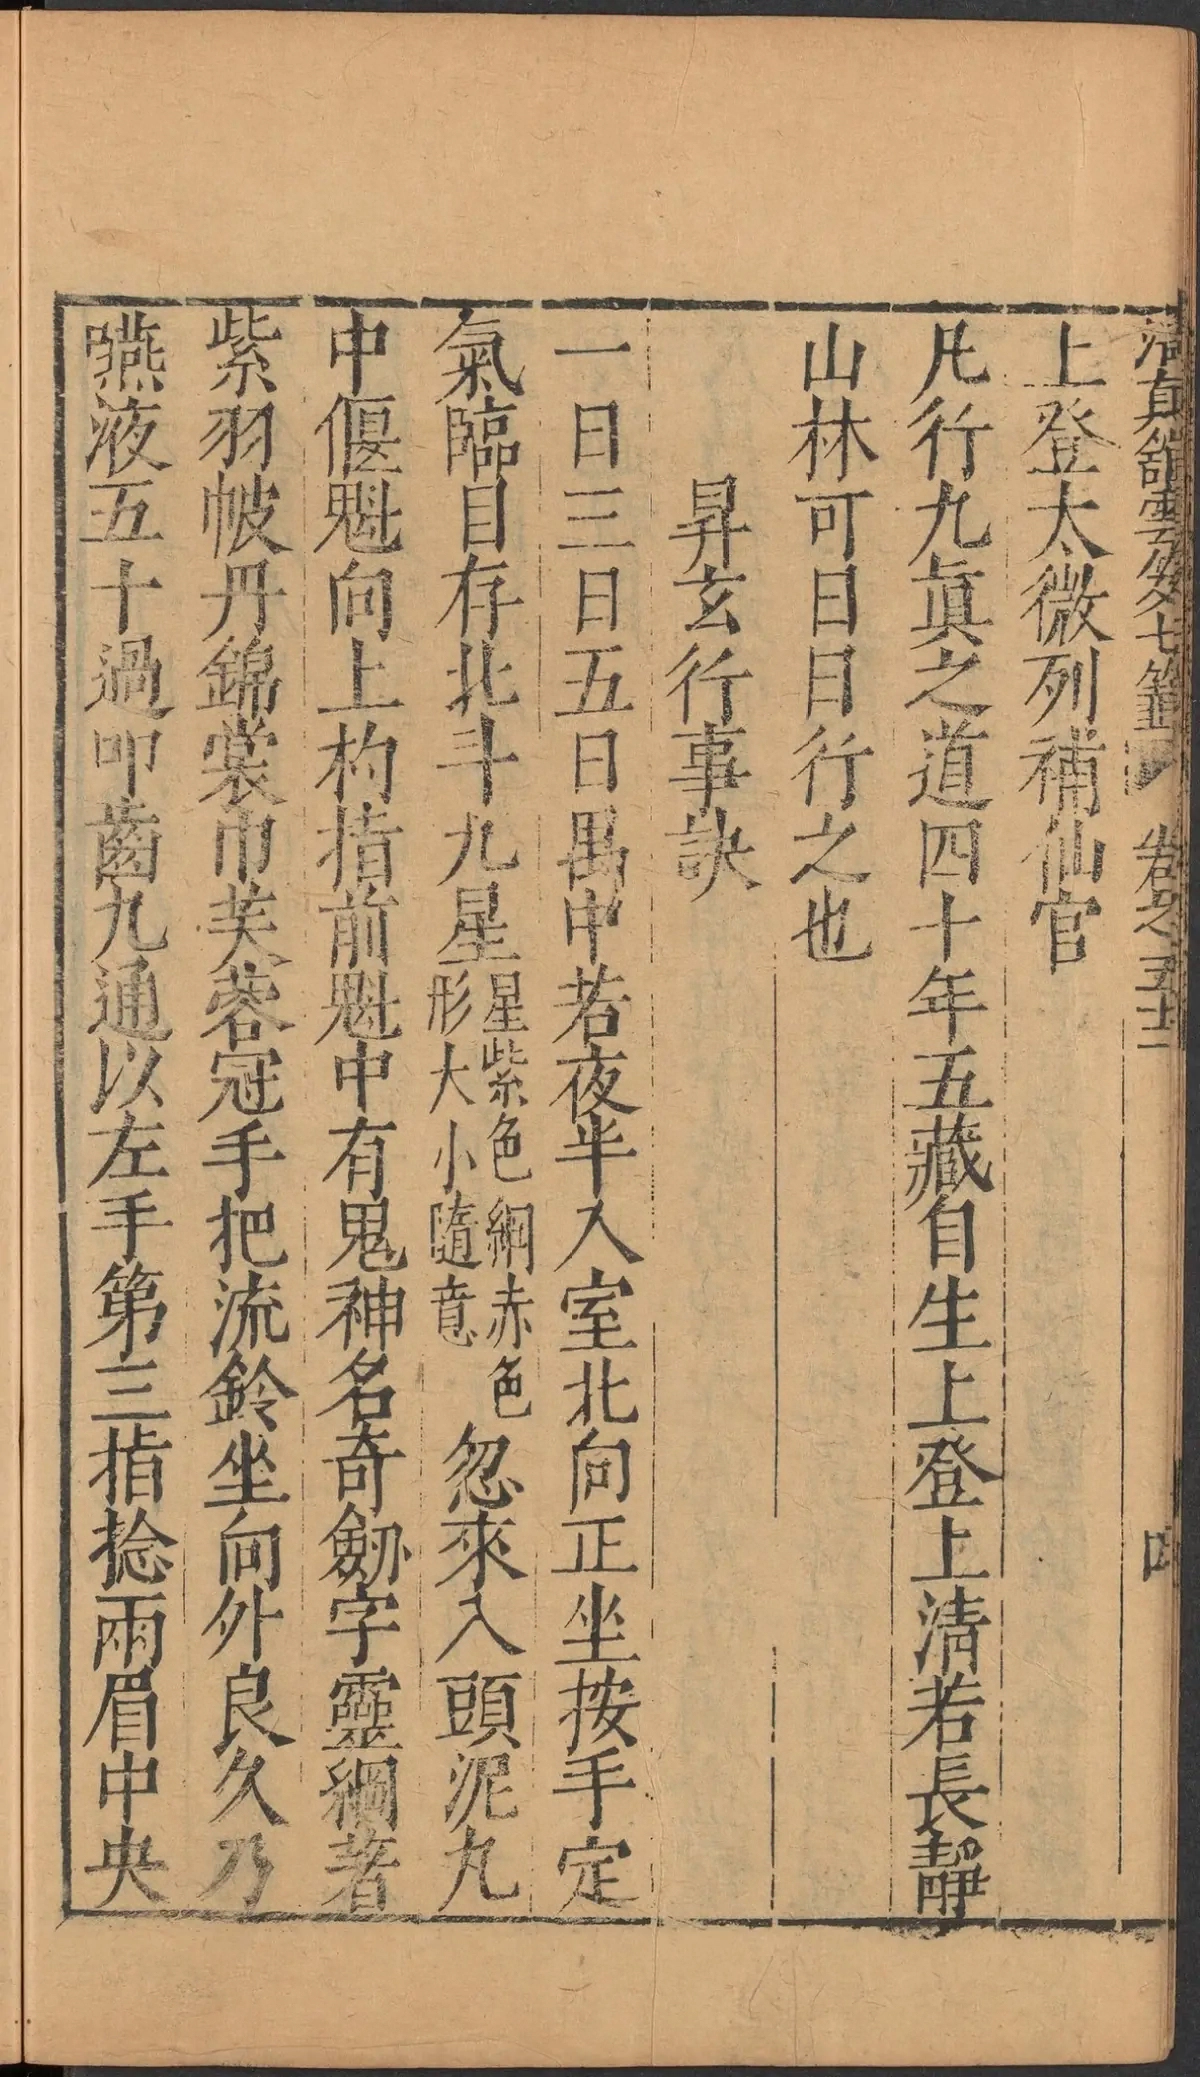 清真館雲笈七籤 卷之五十二 四
上登太微列補仙官
凡行九眞之道四十年五藏自生上登上清若長靜
山林可日日行之也
昇玄行事訣
一日三日五日禺中若夜半入室北向正坐按手定
氣臨目存北斗九星星紫色綱赤色形大小隨意忽來入頭泥丸
中偃魁向上杓指前魁中有鬼神名奇劒字靈綱著
紫羽帔丹錦裳巾芙蓉冠手把流鈴坐向外良久乃
嚥液五十過叩齒九通以左手第三指捻兩眉中央